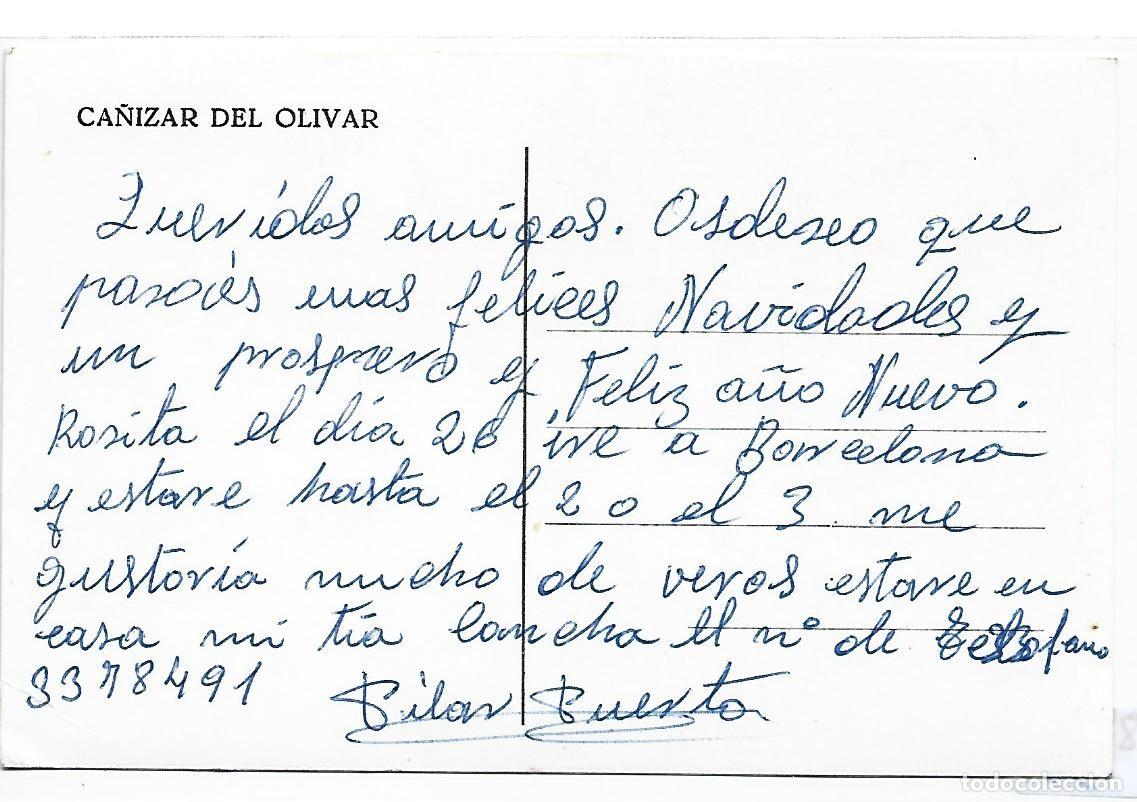 CAÑIZAR DEL OLIVAR
Queridos amigos. Os deseo que
paseis unas felices Navidades y
un prospero y Feliz año Nuevo.
Rosita el dia 26 ire a Barcelona
y estare hasta el 2 o el 3 me
gustaria mucho de veros estare en
casa mi tia Concha el nº de
3378491 Pilar Puerta
todocoleccion